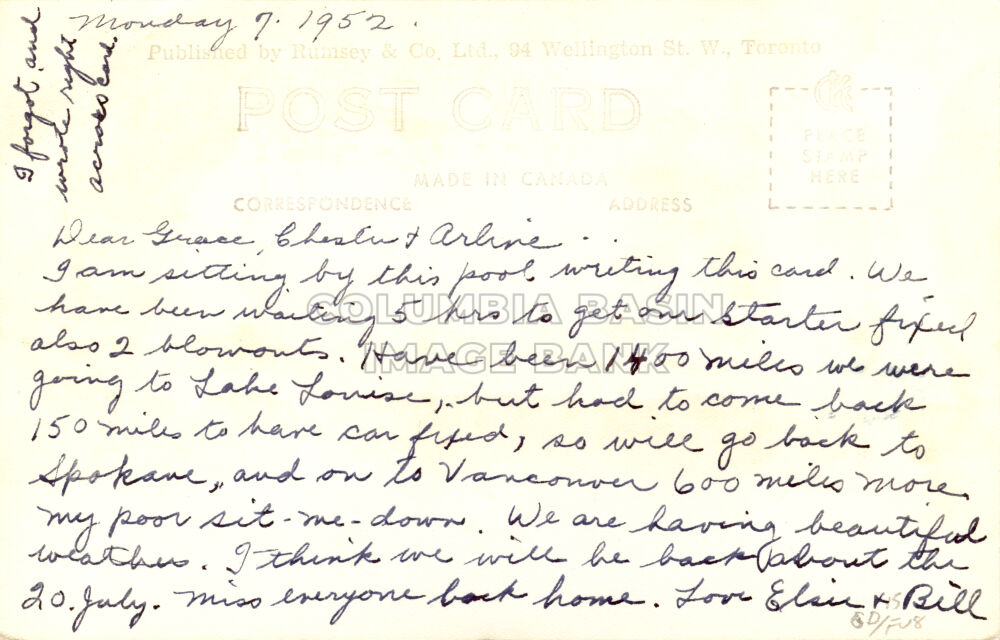 Monday 7. 1952.
I forgot and
wrote right
across card.
Published by Rumsey & Co. Ltd., 94 Wellington St. W., Toronto
POST CARD
PLACE
STAMP
HERE
MADE IN CANADA
CORRESPONDENCE ADDRESS
Dear Grace, Chester & Arline . .
I am sitting by this pool writing this card. We
have been waiting 5 hrs to get our starter fixed
also 2 blowouts. Have been 1400 miles we were
going to Lake Louise, but had to come back
150 miles to have car fixed, so will go back to
Spokane, and on to Vancouver 600 miles more.
my poor sit-me-down. We are having beautiful
weather. I think we will be back about the
20. July. Miss everyone back home. Love Elsie & Bill
COLUMBIA BASIN
IMAGE BANK